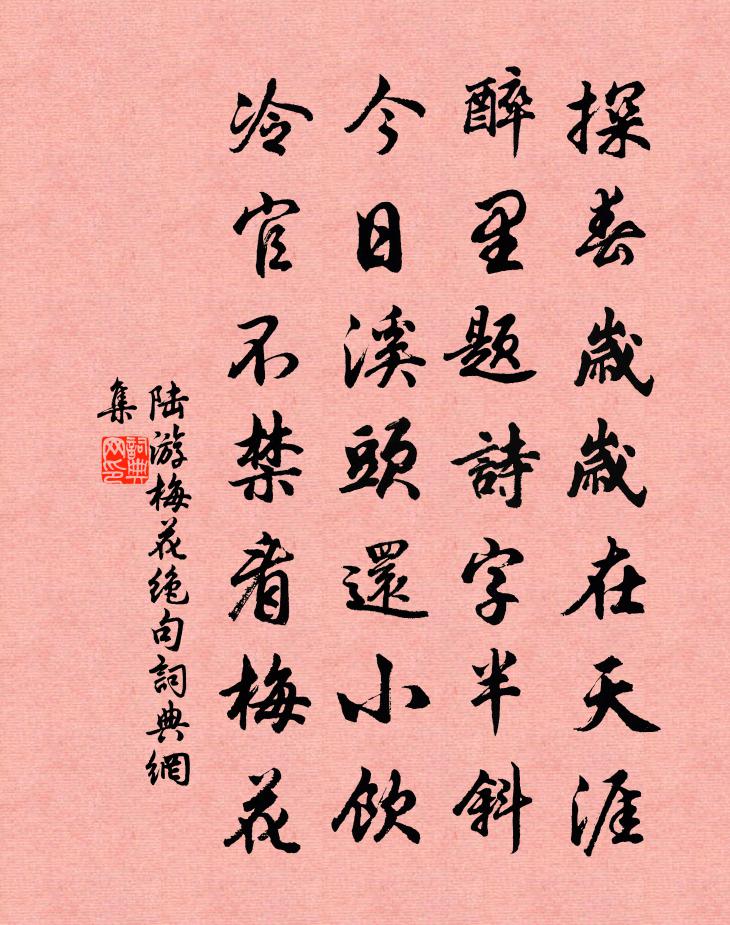 探春歲歲在天涯
醉里題詩字半斜
今日溪頭還小飲
冷官不禁看梅花
陆游梅花絶句詞典網
集
詞典网印